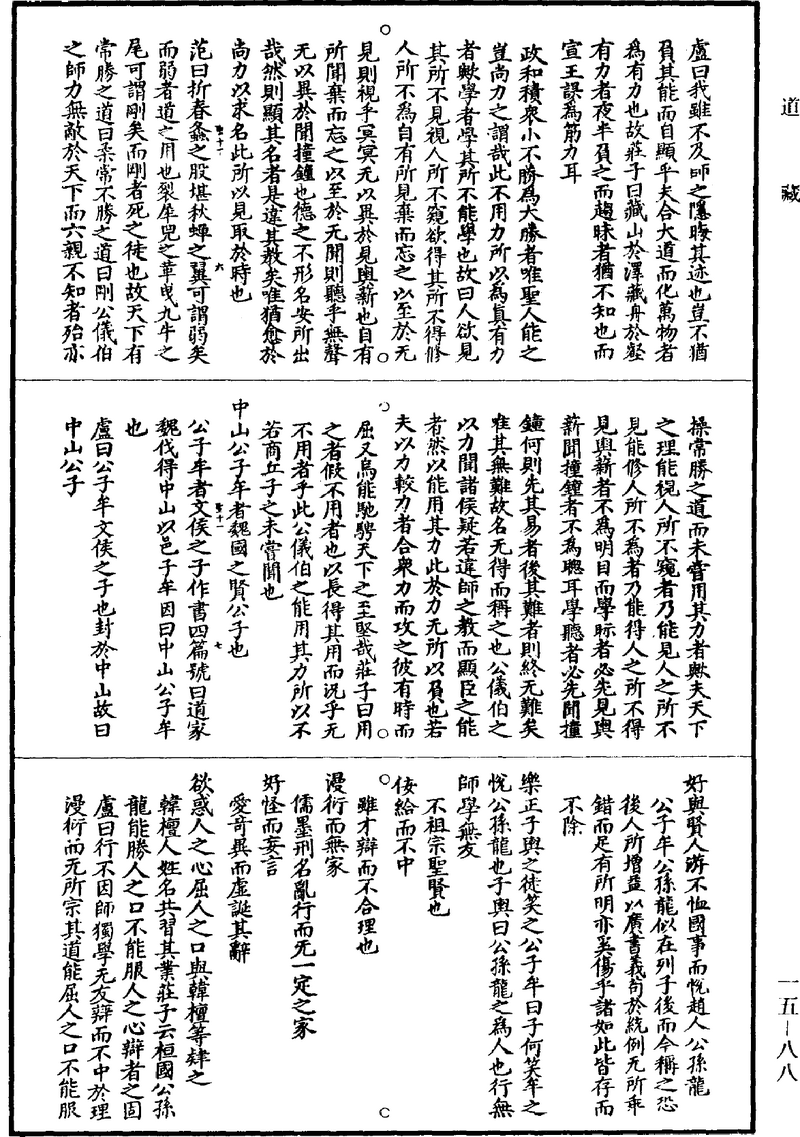 道藏
盧曰我雖不及師之隱晦其迹也豈不猶
負其能而自顯乎夫合大道而化萬物者
為有力也故莊子曰藏山於澤藏舟於壑
有力者夜半負之而趨昧者猶不知也而
宣王誤為筋力耳
政和積衆小不勝為大勝者唯聖人能之
豈尚力之謂哉此不用力所以為真有力
者歟學者學其所不能學也故曰人欲見
其所不見視人所不窺欲得其所不得修
人所不為自有所見棄而忘之以至於无
見則視乎冥冥无以異於見輿薪也自有
所聞棄而忘之以至於无聞則聽乎無聲
无以異於聞撞鐘也德之不形名安所出
哉然則顯其名者是違其教矣唯猶愈於
尚力以求名此所以見取於時也
范曰折春螽之股堪秋蟬之翼可謂弱矣
而弱者道之用也裂犀兕之革曳九牛之
尾可謂剛矣而剛者死之徒也故天下有
常勝之道曰柔常不勝之道曰剛公儀伯
之師力無敵於天下而六親不知者殆亦
操常勝之道而未嘗用其力者歟夫天下
之理能視人所不窺者乃能見人之所不
見能修人所不為者乃能得人之所不得
見輿薪者不為明目而學眎者必先見輿
薪聞撞鐘者不為聰耳學聽者必先聞撞
鐘何則先其易者後其難者則終无難矣
唯其無難故名无得而稱之也公儀伯之
以力聞諸侯疑若違師之教而顯臣之能
者然以能用其力此於力无所以負也若
夫以力較力者合衆力而攻之彼有時而
屈又烏能馳騁天下之至堅哉莊子曰用
之者假不用者也以長得其用而況乎无
不用者乎此公儀伯之能用其力所以不
若商丘子之未嘗聞也
中山公子牟者魏國之賢公子也
公子牟者文侯之子作書四篇號曰道家
魏伐得中山以邑子牟因曰中山公子牟
也
盧曰公子牟文侯之子也封於中山故曰
中山公子
好與賢人游不恤國事而悅趙人公孫龍
公子牟公孫龍似在列子後而今稱之恐
後人所增益以廣書義苟於統例无所乖
錯而足有所明亦奚傷乎諸如此皆存而
不除
樂正子輿之徒笑之公子牟曰子何笑牟之
悅公孫龍也子輿曰公孫龍之為人也行無
師學無友
不祖宗聖賢也
佞給而不中
雖才辯而不合理也
漫衍而無家
儒墨刑名亂行而无一定之家
好怪而妄言
愛奇異而虛誕其辭
欲惑人之心屈人之口與韓檀等肄之
韓檀人姓名共習其業莊子云桓國公孫
龍能勝人之口不能服人之心辯者之固
盧曰行不因師獨學无友辯而不中於理
漫衍而无所宗其道能屈人之口不能服
一五-八八